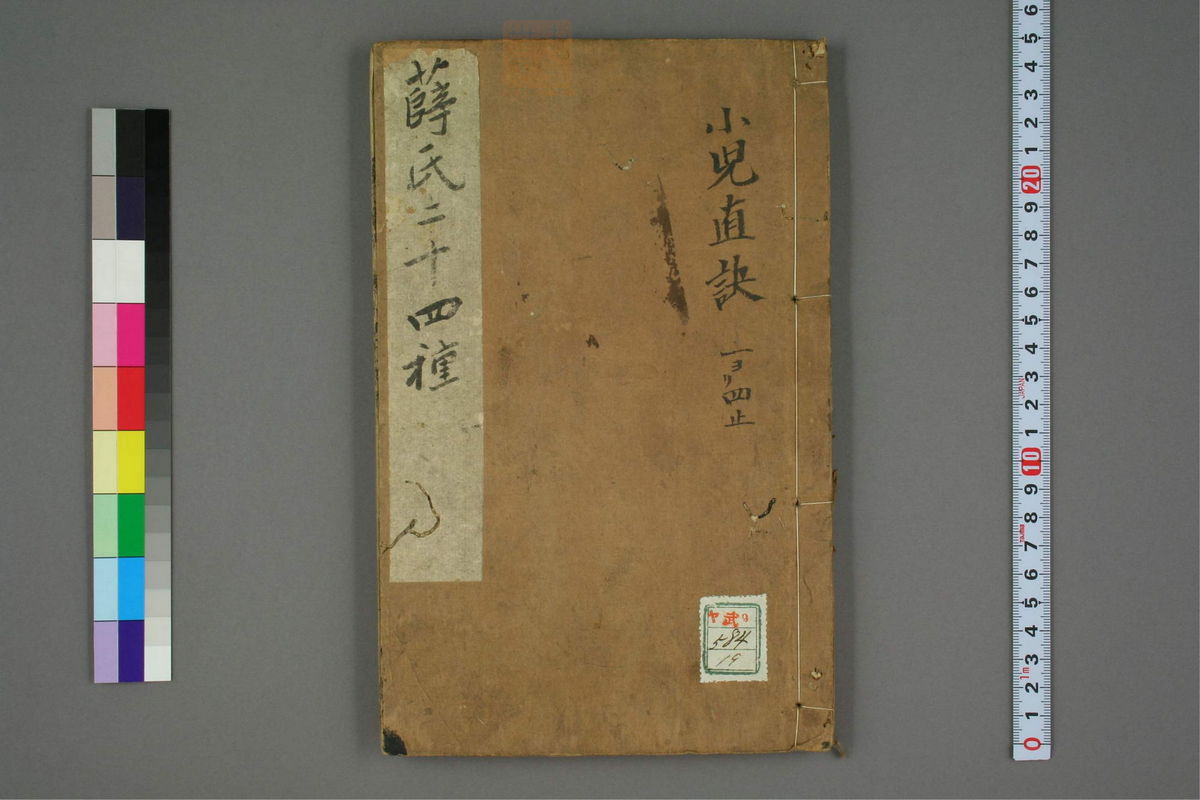 小児直訣
一ヨリ四止
薛氏二十四種
武
584
19
6
5
4
3
2
1
20
9
8
7
6
5
4
3
2
1
10
9
8
7
6
5
4
3
1m
2
1
0